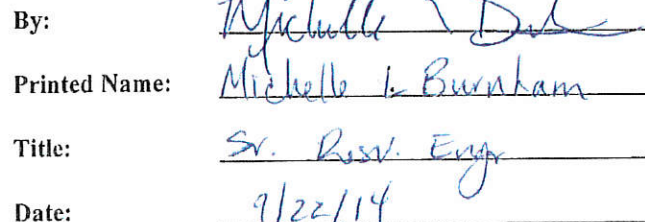 By: Michelle
Printed Name: Michelle L. Burnham
Title: Sr. Resv. Engr
Date: 9/22/14